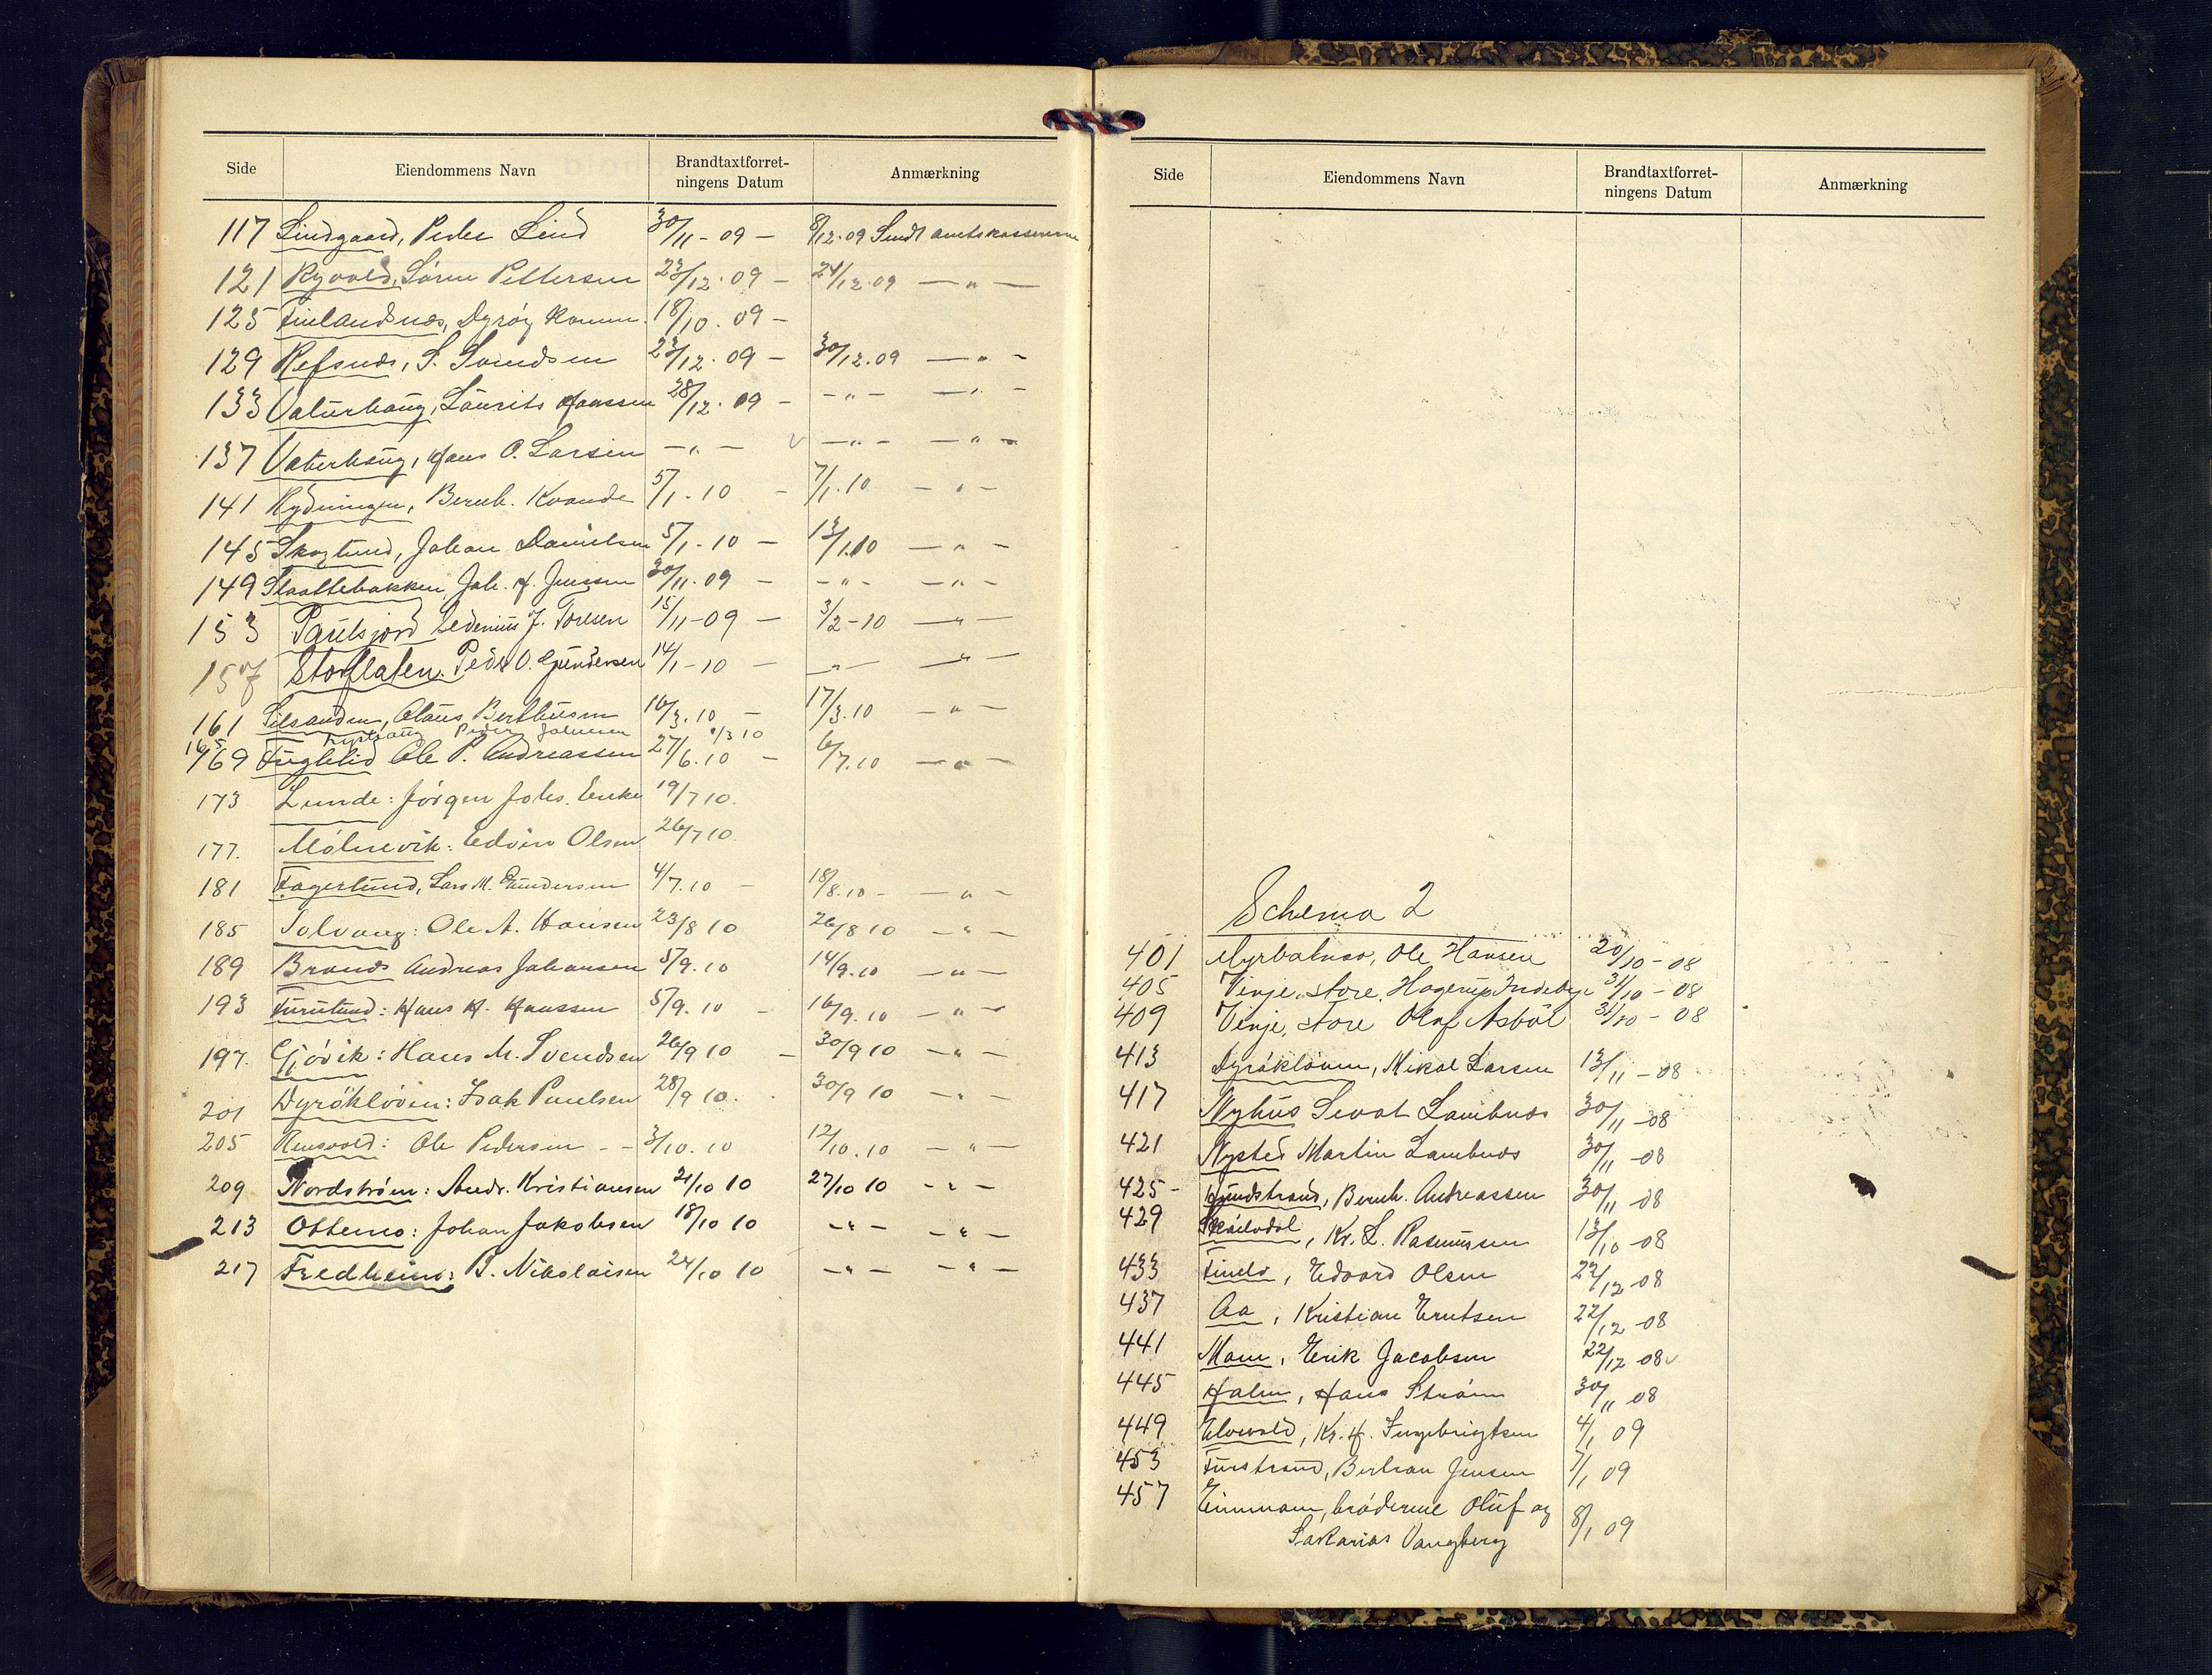 Side Eiendommens Navn Brandtaxtforret-ningens Datum Anmærkning
117 Lindgaard, Peder Lind 30/11-09 - 8/12.09 Sendt amtskassereren
121 Rydvold, Sørn Pettersen 23/12.09 - 24/12.09 — " —
125 Finlandsnæs, Dyrøy komm. 18/10.09 -
129 Refsnæs, S. Svendsen 23/12.09 - 30/12.09 — " -
133 Vaturhaug, Laurits Hanssen 28/12.09 - - " - — " -
137 Vaterhaug, Hans O. Larsen — " — v — " - — " -
141 Rydningen, Bernh. Kvande 5/1.10 - 7/1.10 — " -
145 Skoglund, Johan Danielsen 5/1.10 - 13/1.10 — " -
149 Slaattebakken, Joh. H. Jenssen 30/11.09 - - " - — " -
153 Paulsjord Sedenius J. Toresen 15/11-09 - 3/2-10 — " —
157 Storflaten. Peder O. Gundersen 14/1-10 - — " — — " —
161 Silsanden, Olaus Berthusen 16/3.10 - 17/3.10 — " —
165 Lysthaug Peder Johnsen 9/3 10
169 Fuglelid Ole P. Andreassen 27/6.10 - 6/7.10 — " —
173 Lunde: Jørgen Johs. 19/7 10.
177. Mølnevik: Edvin Olsen 26/7 10.
181 Fagerlund, Lars M. Gundersen 4/7.10 - 18/8.10 - — " -
185 Solvang: Ole A. Hansen 23/8 10 26/8 10 — " —
189 Brands Andreas Johansen 5/9.10 14/9.10 — " —
193 Furulund: Hans H. Hanssen 5/9.10 - 16/9.10 — " —
197. Gjøvik: Hans M. Svendsen 26/9 10 - 30/9 10 — " —
201 Dyrökløven: Isak Paulsen 28/9 10. 30/9 10 — " —
205 Ole Pedersen - - 3/10.10 12/10.10 — " —
209 Nordstrøm: Andr. Kristiansen 21/10 10 27/10 10 - " -
213 Ottemo: Johan Jakobsen 18/10 10 - " - — " —
217 Fredheim: P. Nikolaisen 24/10 10 — " — — " —
Side Eiendommens Navn Brandtaxtforret-ningens Datum Anmærkning
Schema 2
401 Myrbaknes, Ole Hansen 20/10-08
405 Vinje, store. Hagerup Indebye 31/10-08
409 Vinje, store Olaf Asbøl 31/10-08
413 Dyrökloven, Nikol Larsen 13/11-08
417 Nyhus Sevat Lambnæs 30/11-08
421 Nysted Martin Lambnæs 30/11-08
425- Hundstrand, Bernh. Andreassen 30/11-08
429 Skøelvdal, Kr. L. Rasmussen 13/10-08
433 Finelv, Edvard Olsen 22/12-08
437 Aa, Kristian Erntsen 22/12-08
441 Moen, Erik Jacobsen 22/12 08 v
445 Holm, Hans Strøm 30/11 08
449 Elvevold, Kr. H. Ingebrigtsen 4/1 09
453 Furstrand, Bertran Jensen 7/1 09
457 Einmoen, brøderne Oluf og
Sakarias Vangberg 8/1 09